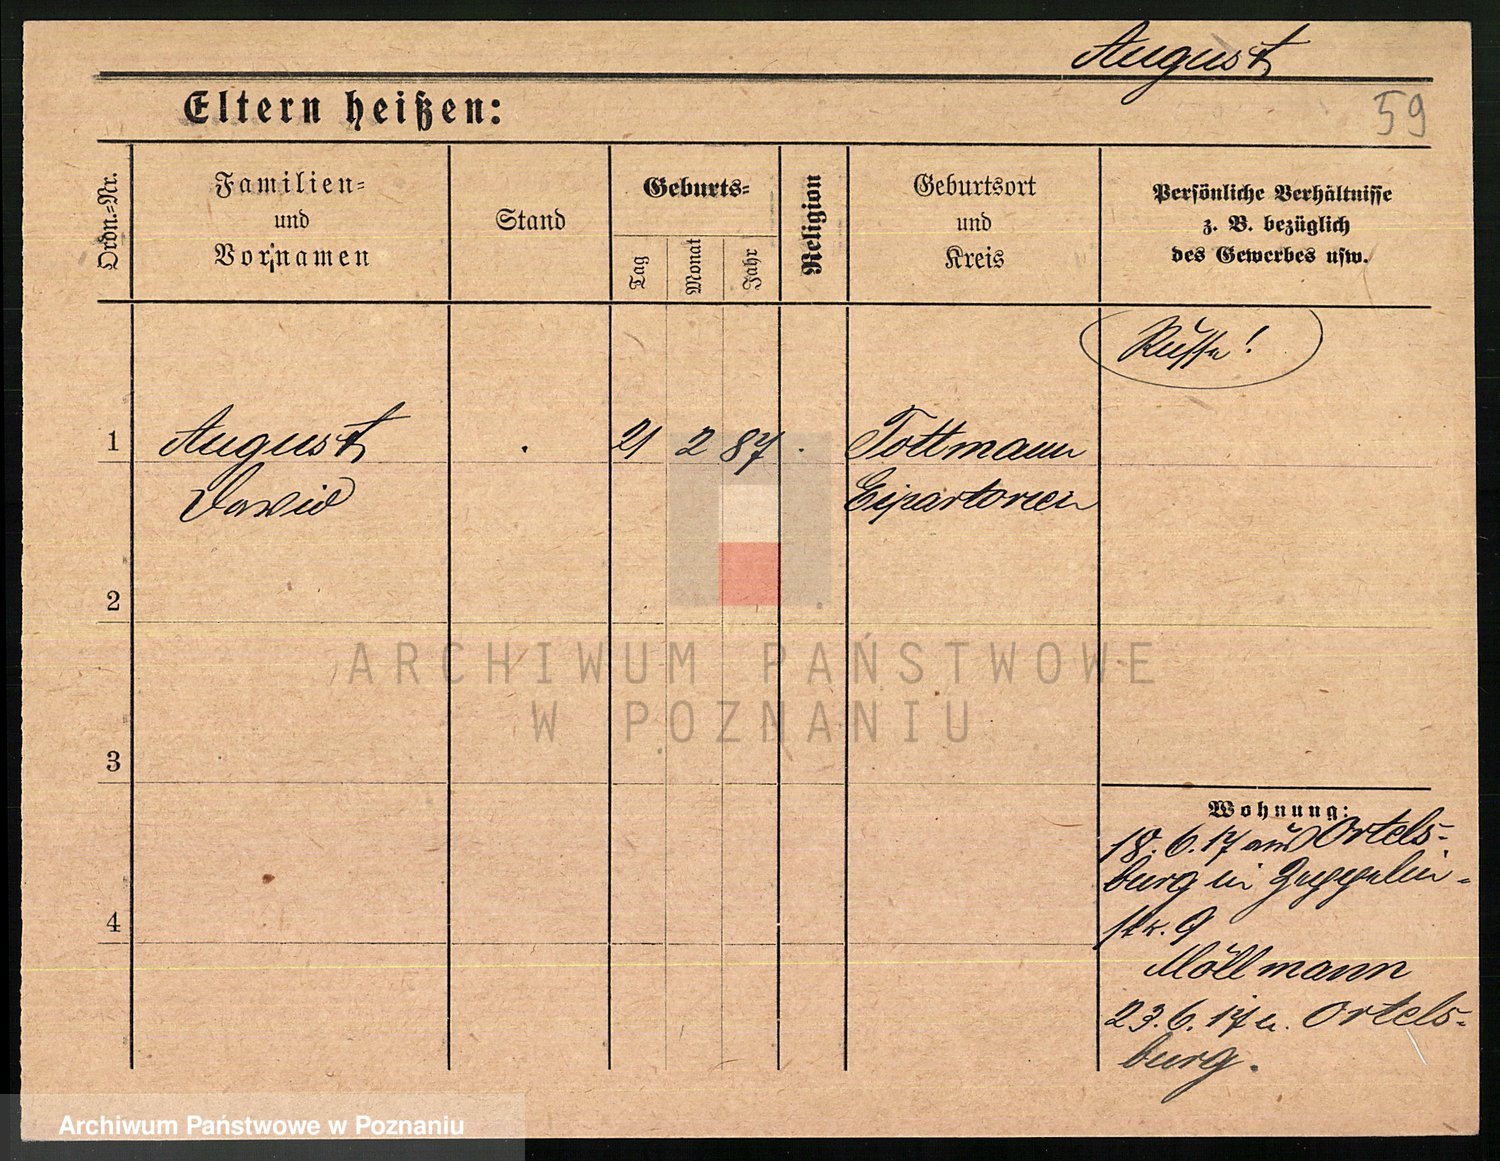 August
Eltern heißen:
59
Ordn.-Nr.
Familien-
und
Vornamen
Stand
Geburts-
Tag
Monat
Jahr
Religion
Geburtsort
und
Kreis
Persönliche Verhältnisse
z. B. bezüglich
des Gewerbes usw.
Russe!
1 August 21 2 87 Tottmann
David
2
3
4
Wohnung:
18.6.17 aus Ortels-
burg in Zeppelin-
str. 9
Möllmann
23.6.17 n. Ortels-
burg.
ARCHIWUM PAŃSTWOWE
W POZNANIU
Archiwum Państwowe w Poznaniu